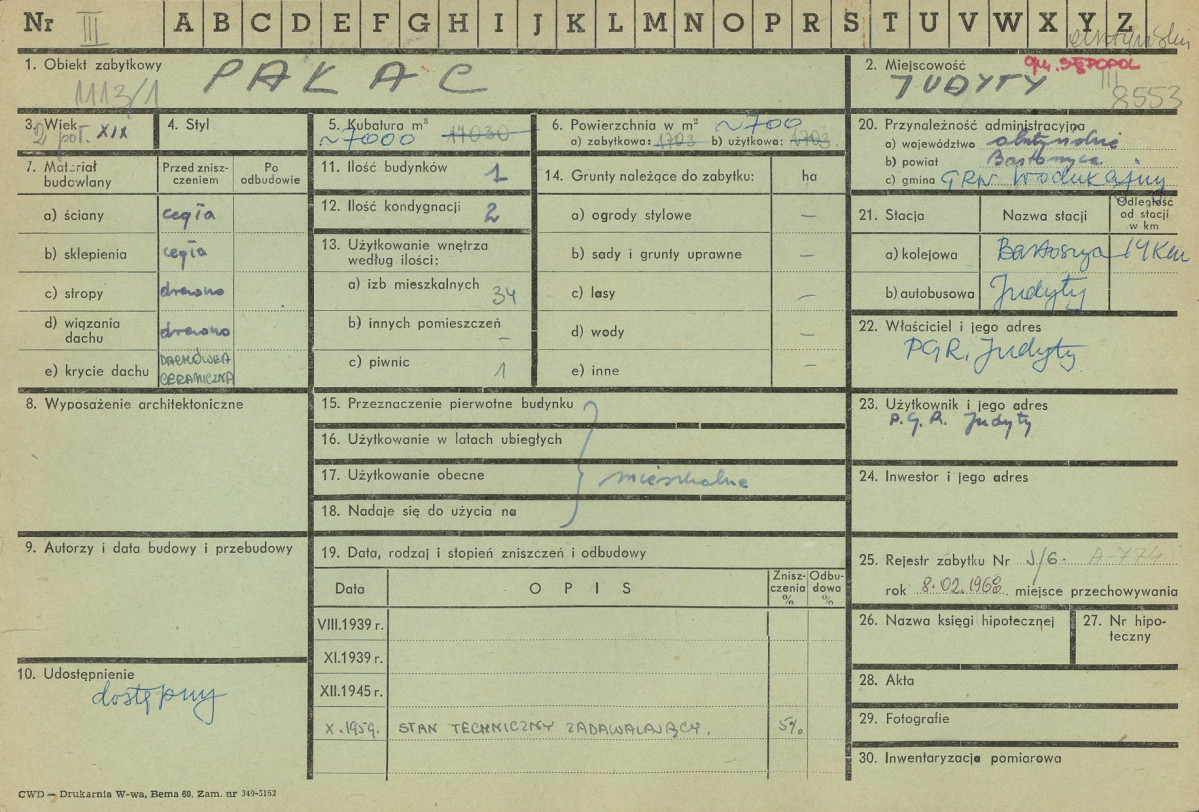 Nr III A B C D E F G H I J K L M N O P R S T U V W X Y Z
1. Obiekt zabytkowy
1113/1
PAŁAC
2. Miejscowość
gm. SĘPOPOL
JUDYTY
III
8553
3. Wiek
2 poł. XIX
4. Styl
5. Kubatura m³
~7000 17030
6. Powierzchnia w m² ~700
a) zabytkowa: 1703 b) użytkowa: 1703
20. Przynależność administracyjna
a) województwo olsztyńskie
b) powiat Bartoszyce
c) gmina GRN Wodukajmy
7. Materiał budowlany
Przed zniszczeniem
Po odbudowie
a) ściany cegła
b) sklepienia cegła
c) stropy drewno
d) wiązania dachu drewno
e) krycie dachu DACHÓWKA CERAMICZNA
11. Ilość budynków 1
12. Ilość kondygnacji 2
13. Użytkowanie wnętrza
według ilości:
a) izb mieszkalnych 34
b) innych pomieszczeń –
c) piwnic 1
14. Grunty należące do zabytku: ha
a) ogrody stylowe –
b) sady i grunty uprawne –
c) lasy –
d) wody –
e) inne –
21. Stacja
Nazwa stacji
Odległość od stacji w km
a) kolejowa 14 km
b) autobusowa Judyty
22. Właściciel i jego adres
PGR. Judyty
8. Wyposażenie architektoniczne
15. Przeznaczenie pierwotne budynku
16. Użytkowanie w latach ubiegłych
17. Użytkowanie obecne
mieszkalne
18. Nadaje się do użycia na
23. Użytkownik i jego adres
P.G.R. Judyty
24. Inwestor i jego adres
9. Autorzy i data budowy i przebudowy
19. Data, rodzaj i stopień zniszczeń i odbudowy
Data
OPIS
Zniszczenia %
Odbudowa %
VIII.1939 r.
XI.1939 r.
XII.1945 r.
X.1959. STAN TECHNICZNY ZADAWALAJĄCY. 5%
25. Rejestr zabytku Nr J/6. A-774
rok 8.02.1968 miejsce przechowywania
26. Nazwa księgi hipotecznej
27. Nr hipoteczny
10. Udostępnienie
dostępny
28. Akta
29. Fotografie
30. Inwentaryzacja pomiarowa
CWD — Drukarnia W-wa, Bema 60. Zam. nr 349-5162